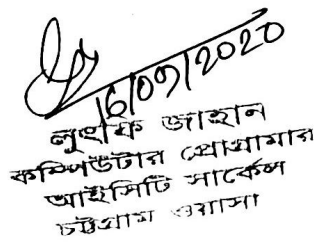 16/09/2020
লুৎফি জাহান
কম্পিউটার প্রোগ্রামার
আইসিটি সার্কেল
চট্টগ্রাম ওয়াসা